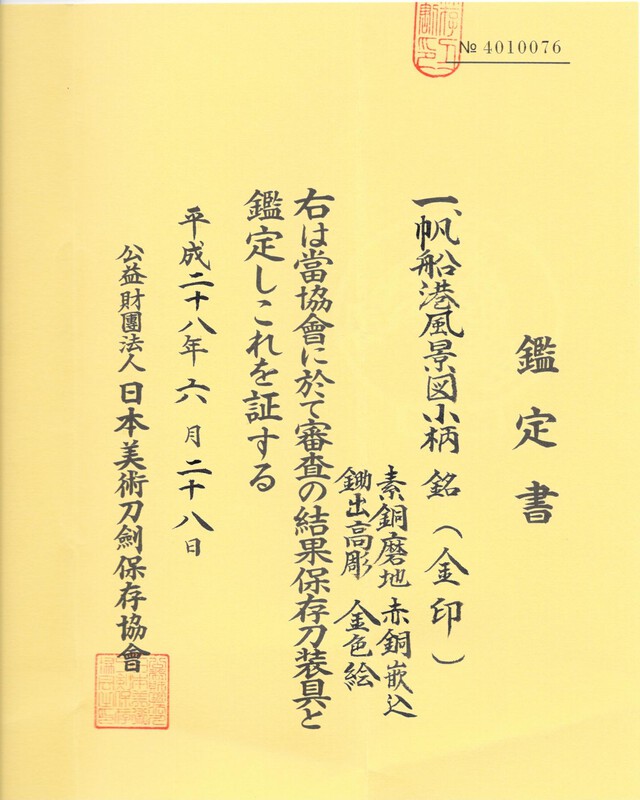 № 4010076
鑑定書
一、帆船港風景図小柄 銘(金印)
素銅磨地 赤銅嵌込
鋤出高彫 金色絵
右は當協會に於て審査の結果保存刀装具と
鑑定しこれを証する
平成二十八年六月二十八日
公益財團法人 日本美術刀劍保存協會